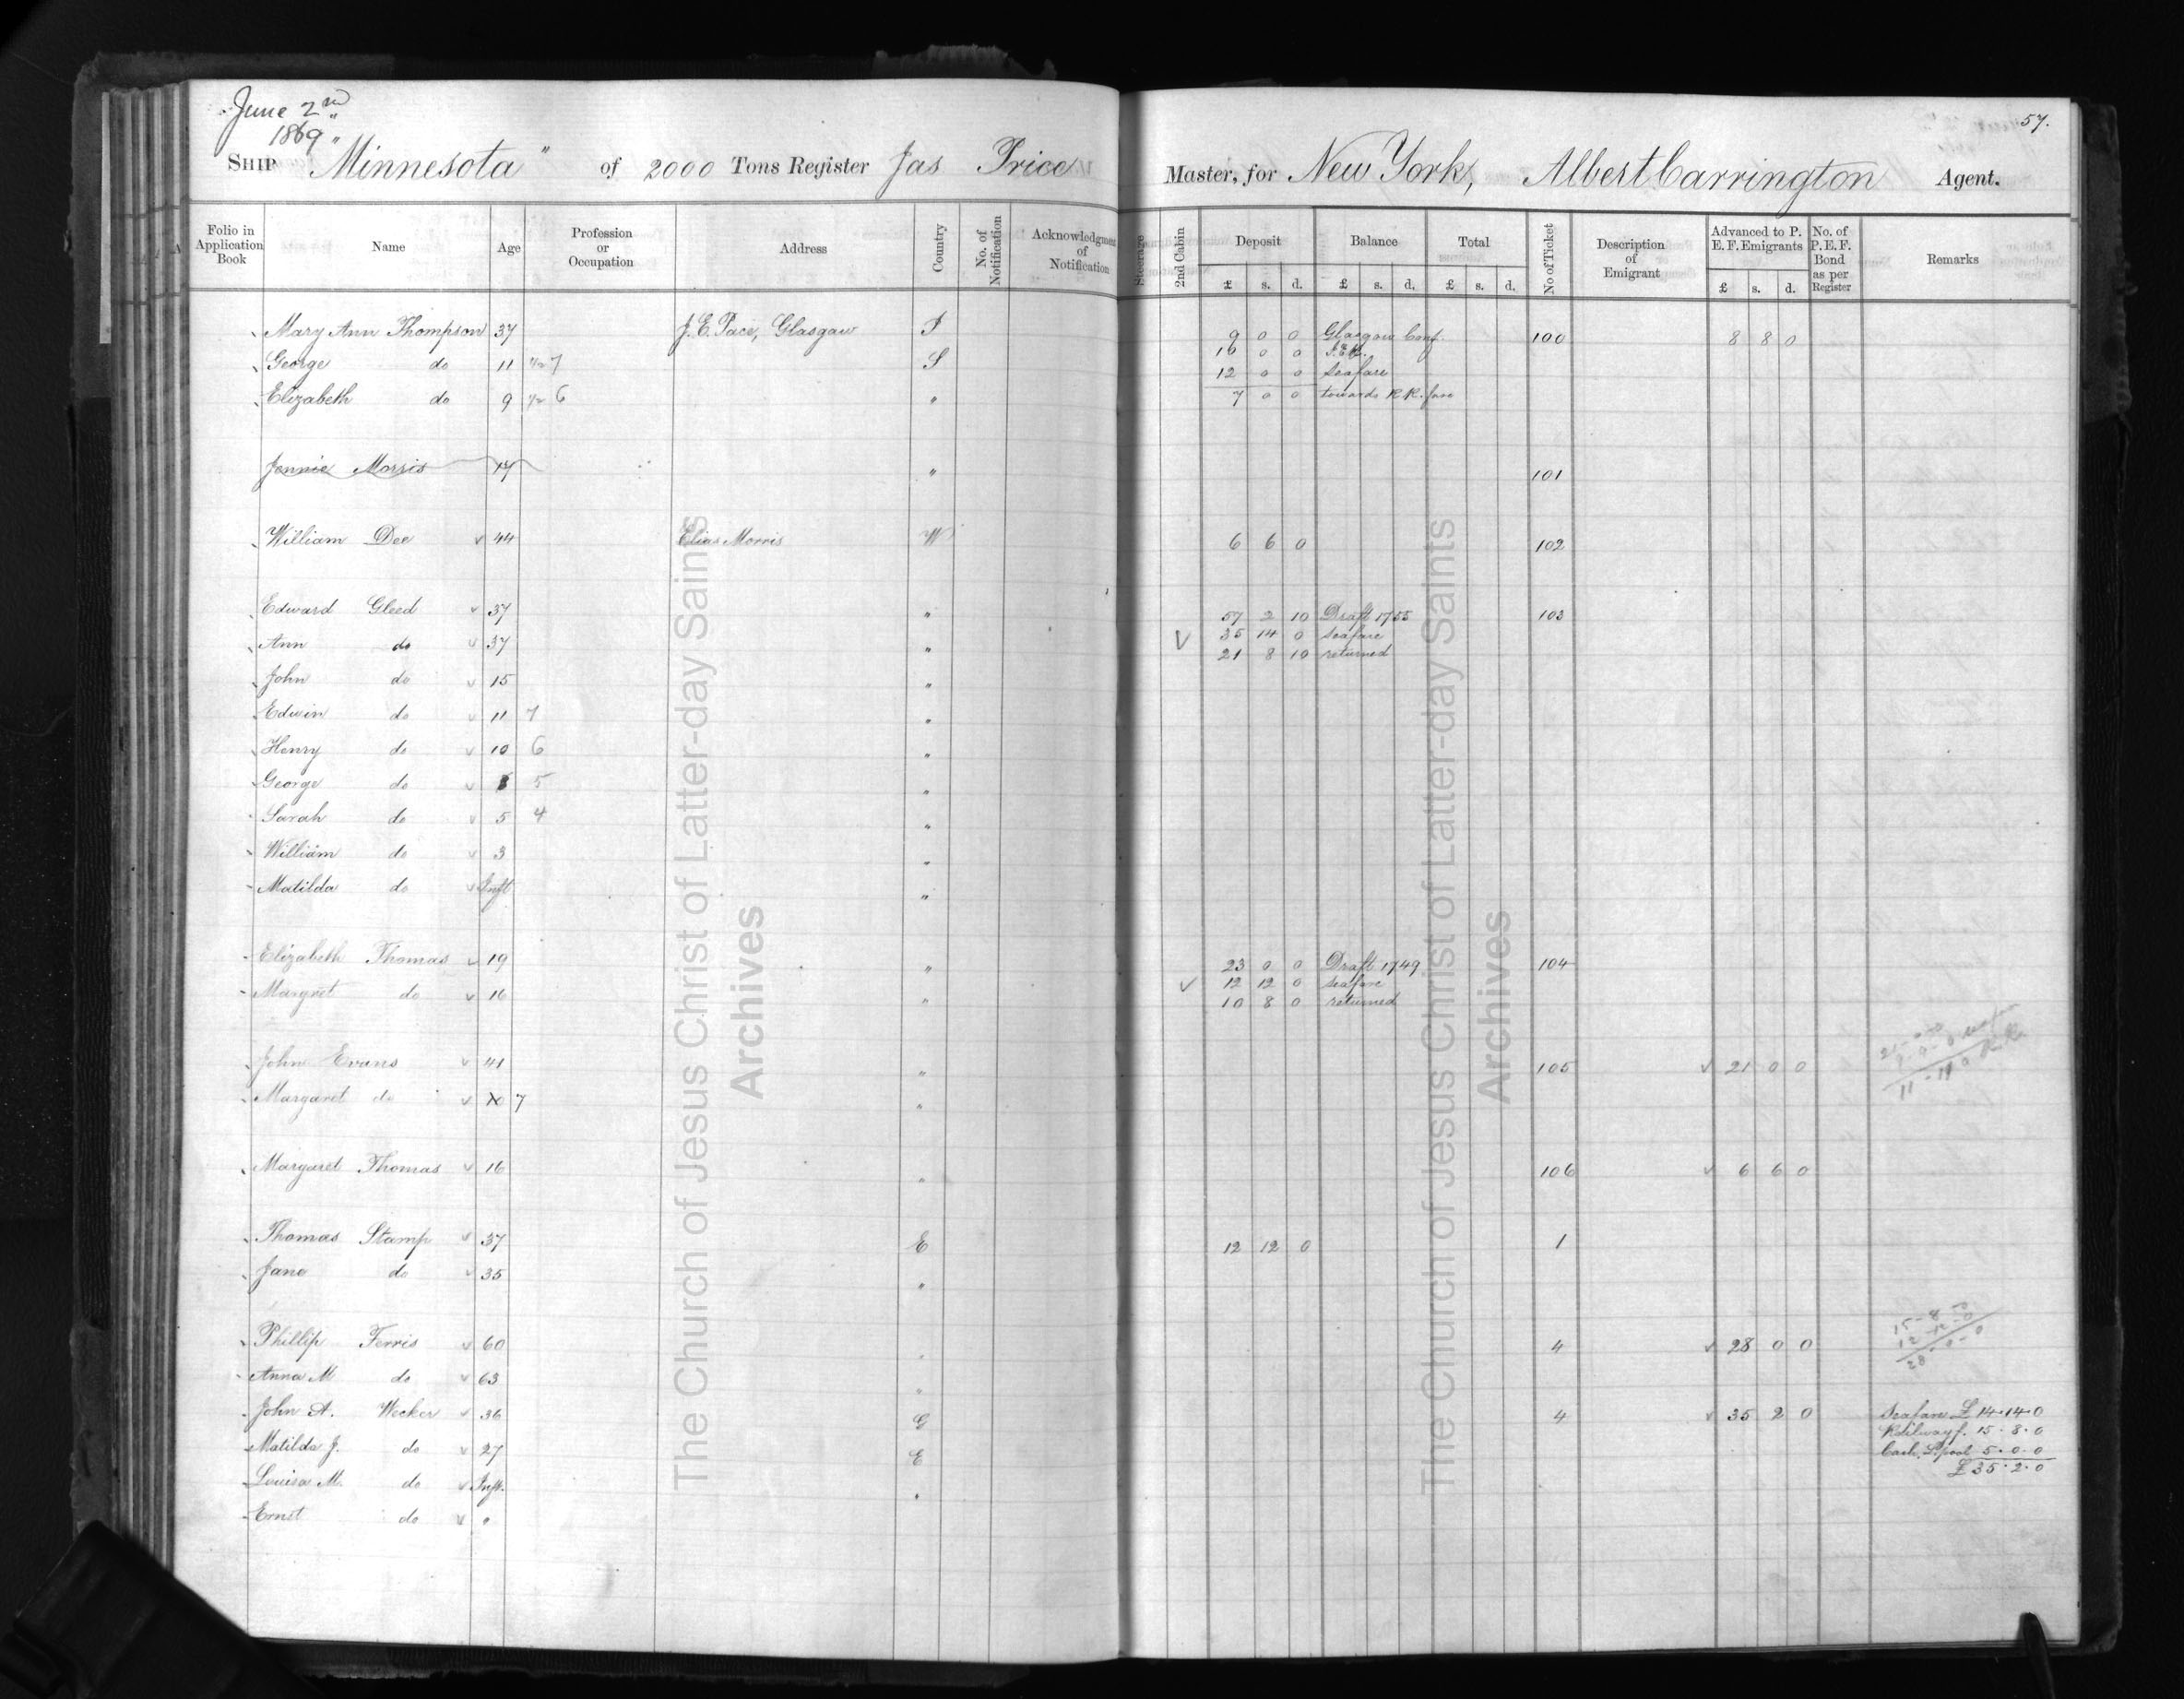 June 2nd
1869
57.
SHIP "Minnesota" of 2000 Tons Register Jas Price Master, for New York, Albert Carrington Agent.
Folio in Application Book Name Age Profession or Occupation Address Country No. of Notification Acknowledgment of Notification Steerage 2nd Cabin Deposit £ s. d. Balance £ s. d. Total £ s. d. No of Ticket Description of Emigrant Advanced to P. E. F. Emigrants £ s. d. No. of P. E. F. Bond as per Register Remarks
Mary Ann Thompson 37 J. E. Pace, Glasgow 9 0 0 Glasgow Conf. 100 8 8 0
10 0 0
George do 11 1/2 7 S 12 0 0 seafare
Elizabeth do 9 1/2 6 " 7 0 0 towards R.R. fare
Jennie Morris " 101
William Dee v 44 Elias Morris W 6 6 0 102
Edward Gleed v 37 " 57 2 10 Draft 1755 103
Ann do v 37 " V 35 14 0 seafare
21 8 10 returned
John do v 15 "
Edwin do v 11 7 "
Henry do v 10 6 "
George do v 5 "
Sarah do v 5 4 "
William do v 3 "
Matilda do v Inft "
Elizabeth Thomas v 19 " 23 0 0 Draft 1749 104
Margret do v 16 " V 12 12 0 seafare
10 8 0 returned
John Evans v 41 " 105 v 21 0 0
Margaret do v 7 "
Margaret Thomas v 16 " 106 v 6 6 0
Thomas Stamp v 37 E 12 12 0 1
Jane do v 35 "
Phillip Ferris v 60 " 4 v 28 0 0
15-8-0
12-12-0
28-0-0
Anna M do v 63 "
John A. Wecker v 36 G 4 v 35 2 0 Seafare £14.14.0
Railway f. 15.8.0
Matilda J. do v 27 E Cash L.pool 5.0.0
£35.2.0
Louisa M. do v Inft. "
Ernst do v "
The Church of Jesus Christ of Latter-day Saints
Archives
The Church of Jesus Christ of Latter-day Saints
Archives